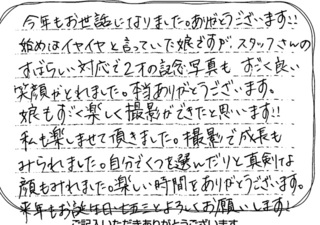 今年もお世話になりました。ありがとうございます!!
始めはイヤイヤと言っていた娘ですが、スタッフさんの
すばらしい対応で2才の記念写真もすごく良い
笑顔がとれました。本当ありがとうございます。
娘もすごく楽しく撮影ができたと思います!!
私も楽しませて頂きました。撮影で成長も
みられました。自分でくつを選んだりと真剣な
顔もみれました。楽しい時間をありがとうございます。
来年もお誕生日・七五三とよろしくお願いします!
ご記入いただきありがとうございます